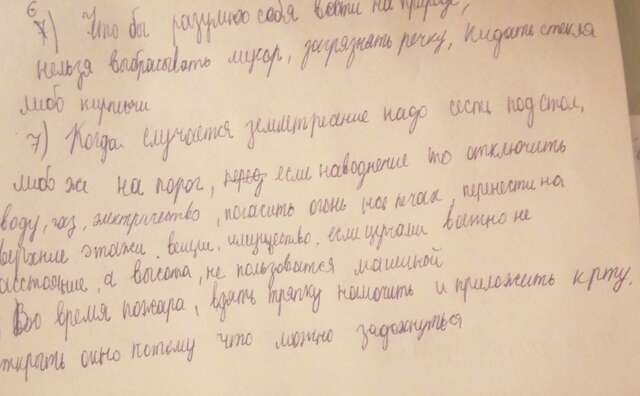 6
7) Что бы разумно себя вести на природе,
нельзя выбрасывать мусор, загрязнять речку, кидать стекла
либо кирпичи
7) Когда случается землетресение надо сесть под стол,
либо же на порог, если наводнение то отключить
воду, газ, электричество, погасить огонь в печах, перенести на
верхние этажи вещи имущество. если цунами важно не
асстояние, а высота, не пользоватся машиной
Во время пожара, взять тряпку намочить и приложить к рту.
ткрыть окно потому что можно задохнуться